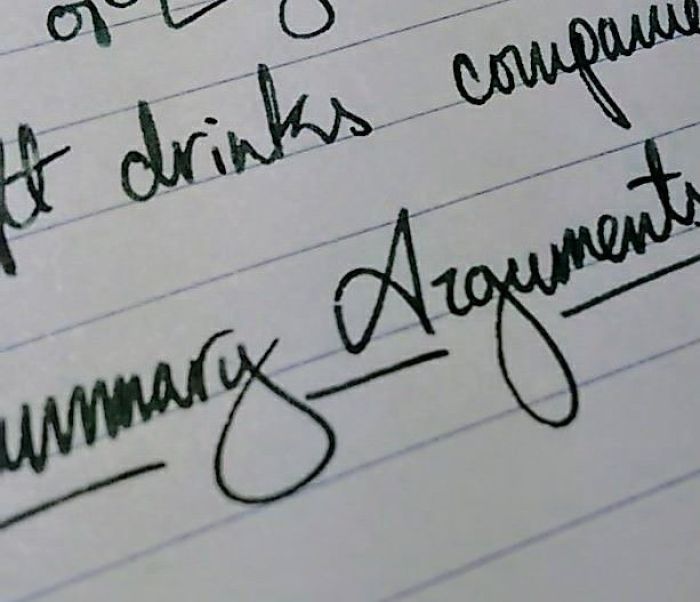 ft drinks companie
ummary Arguments